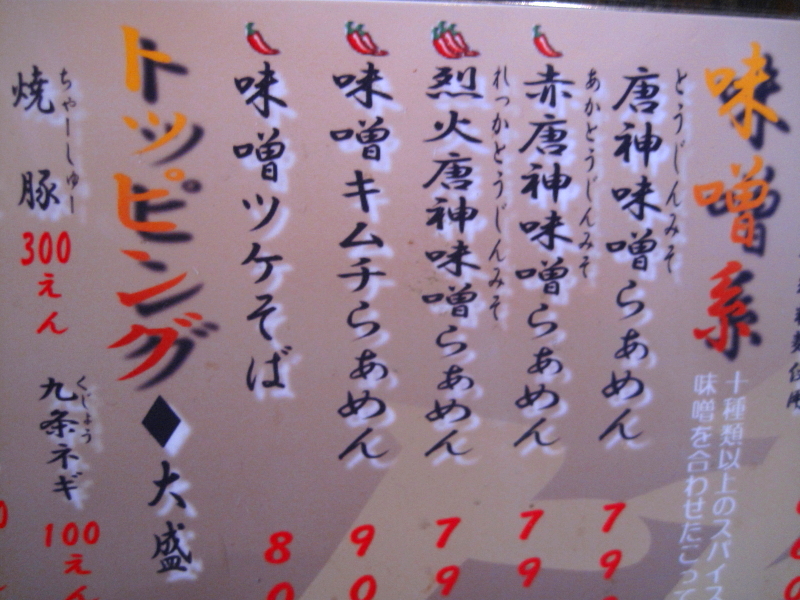 味噌系
十種類以上のスパイス
味噌を合わせたこって
とうじんみそ
唐神味噌らぁめん
79
あかとうじんみそ
赤唐神味噌らぁめん
79
れっかとうじんみそ
烈火唐神味噌らぁめん
79
味噌キムチらぁめん
90
味噌ツケそば
80
トッピング◆大盛
ちゃーしゅー
焼豚
300えん
くじょう
九条ネギ
100えん